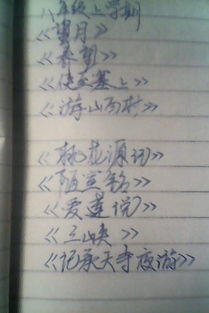 八年级上学期
《望月》
《春望》
《使至塞上》
《游山西村》
《桃花源记》
《陋室铭》
《爱莲说》
《三峡》
《记承天寺夜游》